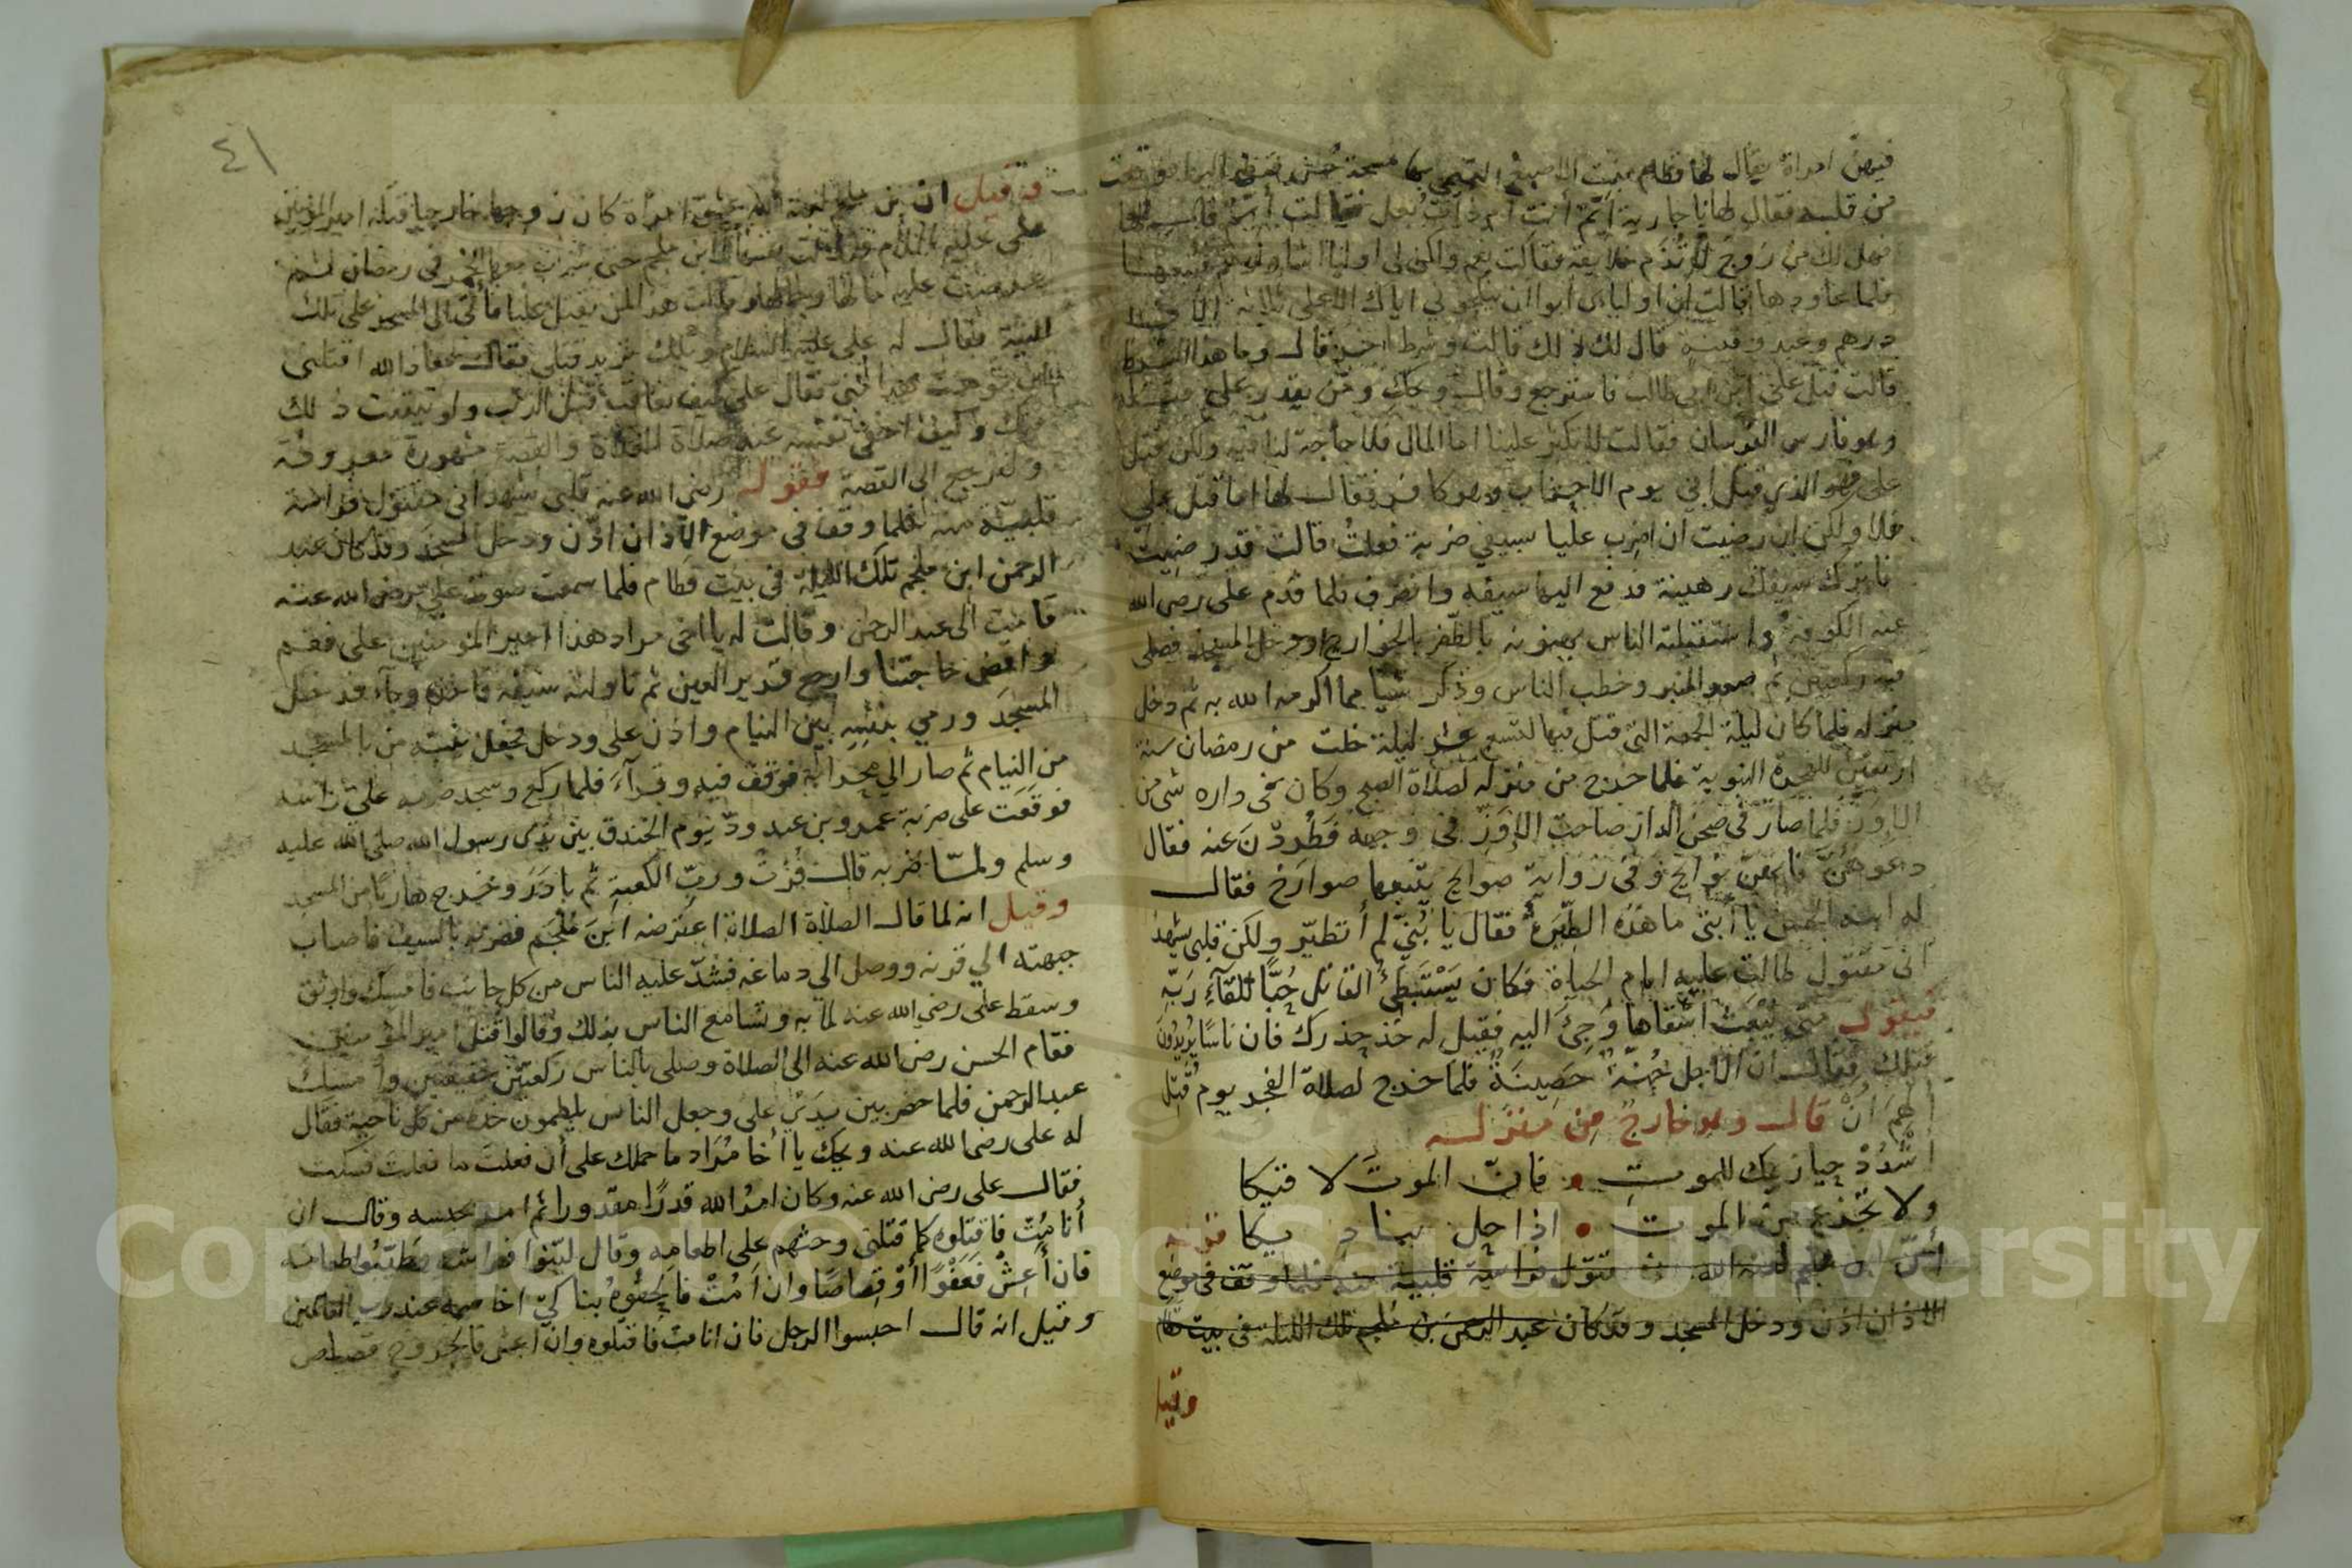 فيهن امراة يقال لها قطام بنت الاصبغ التميمي بها مسحة حسن فنظر اليها فوقعت
من قلبه فقال لها يا جارية أيّم أنت ام ذات بعل فقالت أيّم فقال لها
فهل لك من زوج لا تذم خلايقه فقالت نعم ولكن لي اوليا اشاورهم فتبعها
فلما عاودها قالت إن اولياى ابوا ان ينكحوني اياك الا على ثلاثة الاف
درهم وعبد وقينة قال لك ذلك قالت وشرط اخر قال وما هذا الشرط
قالت قتل علي ابن ابي طالب فاسترجع وقال ويحك ومن يقدر على قتله
وهو فارس الفرسان فقالت لا تكثر علينا اما المال فلا حاجة لنا فيه ولكن قتل
على فهو الذي قتل ابي يوم وهو كافر فقال لها اما قتل علي
فلا ولكن ان رضيت ان اضرب عليا بسيفي ضربة فعلتُ قالت قد رضيت
فاترك سيفك رهينة فدفع اليها سيفه وانصرف فلما قدم على رضى الله
عنه الكوفة واستقبلته الناس يهنونه بالظفر بالخوارج ودخل المسجد فصلى
فيه ركعتين ثم صعد المنبر وخطب الناس وذكر شيا مما اكرمه الله به ثم دخل
منزله فلما كان ليلة الجمعة التي قتل فيها لتسع عشر ليلة خلت من رمضان سنة
اربعين للهجرة النبوية فلما خرج من منزله لصلاة الصبح وكان فى داره شى من
الاوز فلما صار في صحن الدار صاحت الإوز في وجهه فطردن عنه فقال
دعوهن فانهن نوايح وفى رواية صوايح يتبعها صوارخ فقال
له ابنه الحسن يا أبتى ما هذه الطيرة فقال يا بُنيّ لم أتطيّر ولكن قلبى يشهد
انى مقتول طالت عليه ايام الحياة فكان يستبطئ القاتل حُبّا للقآء ربه
فيقول متى يبعث اشقاها وجئ اليه فقيل له خذ حذرك فان ناسا يريدون
قتلك فقال ان الاجل جُنّة حَصِينَةٌ فلما خرج لصلاة الفجر يوم قُتِل
ألهم ان قال وهو خارج من منزله
اشدُدْ حيازيمك للموت • فانّ الموتَ لاقيكا
ولا تجزع من الموت • اذا حل بناديكا
ابن ملجم لعنه الله فلما وقف فى موضع
الاذان اذن ودخل المسجد وقد كان عبد الرحمن بن ملجم تلك الليلة فى بيت قطام
وقيل
٤١
وقيل ان بن ملجم لعنه الله عشق امرأة كان زوجها خارجيا قتله امير المؤمنين
على عليه السلام ابن ملجم حتى شرب معها الخمر فى رمضان ثم
المسجد على تلك
فقال له على عليه السلام ويلك تريد قتلى فقال معاذ الله اقتلنى
فقال على كيف يعاقب قبل الذنب ولو تيقنت ذلك
منك وكيف اخفى نفسه عند صلاة الغداة والقصة مشهورة معروفة
ولنرجع الى القصة فقوله رضى الله عنه قلبى يشهد انى مقتول فراسة
قلبيّة منه فلما وقف فى موضع الآذان اذّن ودخل المسجد وقد كان عبد
الرحمن ابن ملجم تلك الليلة فى بيت قطام فلما سمعت صوت على رضى الله عنه
قامت الى عبد الرحمن وقالت له يا اخى مراد هذا امير المؤمنين على فقم
واقض حاجتنا وارجع قرير العين ثم ناولته سيفه فاخذه وجآء فدخل
المسجد ورمى بنفسه بين النيام واذن على ودخل فجعل ينبه من بالمسجد
من النيام ثم صار الى محرابه فوقف فيه وقرأ فلما ركع وسجد ضربه على رأسه
فوقعت على ضربة عمرو بن عبد ودّ يوم الخندق بين يدى رسول الله صلى الله عليه
وسلم ولمّا ضربه قال فُزْت وربّ الكعبة ثم بادَرَ وخرج هاربًا من المسجد
وقيل انه لما قال الصلاة الصلاة اعترضه ابن مُلْجَم فضربه بالسيف فاصاب
جبهته الي قرنه ووصل الي دماغه فشدّ عليه الناس من كل جانب فامسك واوثق
وسقط على رضى الله عنه لما به وتسامع الناس بذلك وقالوا قُتل امير المؤمنين
فقام الحسن رضى الله عنه الى الصلاة وصلى بالناس ركعتين خفيفتين وأمسك
عبد الرحمن فلما حضر بين يدَيْ على وجعل الناس يلطمون خده من كل ناحية فقال
له على رضى الله عنه ويحك يا أخا مُرَاد ما حملك على أن فعلت ما فعلت فسكت
فقال على رضى الله عنه وكان امرُ الله قدرًا مقدورا ثم امر بحبسه وقال ان
أنا مُتّ فاقتلوه كما قتلنى وحثهم على اطعامه وقال ليّنوا فراشه وطيّبُوا طعامه
فان أَعِشْ فَعَفْوًا أَوْ قِصاصًا وان اَمُتْ فالحقوهُ بنا كيّ اخاصمه عند رب العالمين
وقيل انه قال احبسوا الرجل فان انا مت فاقتلوه وان اعش فالجروح قصاص
Copyright © King Saud University